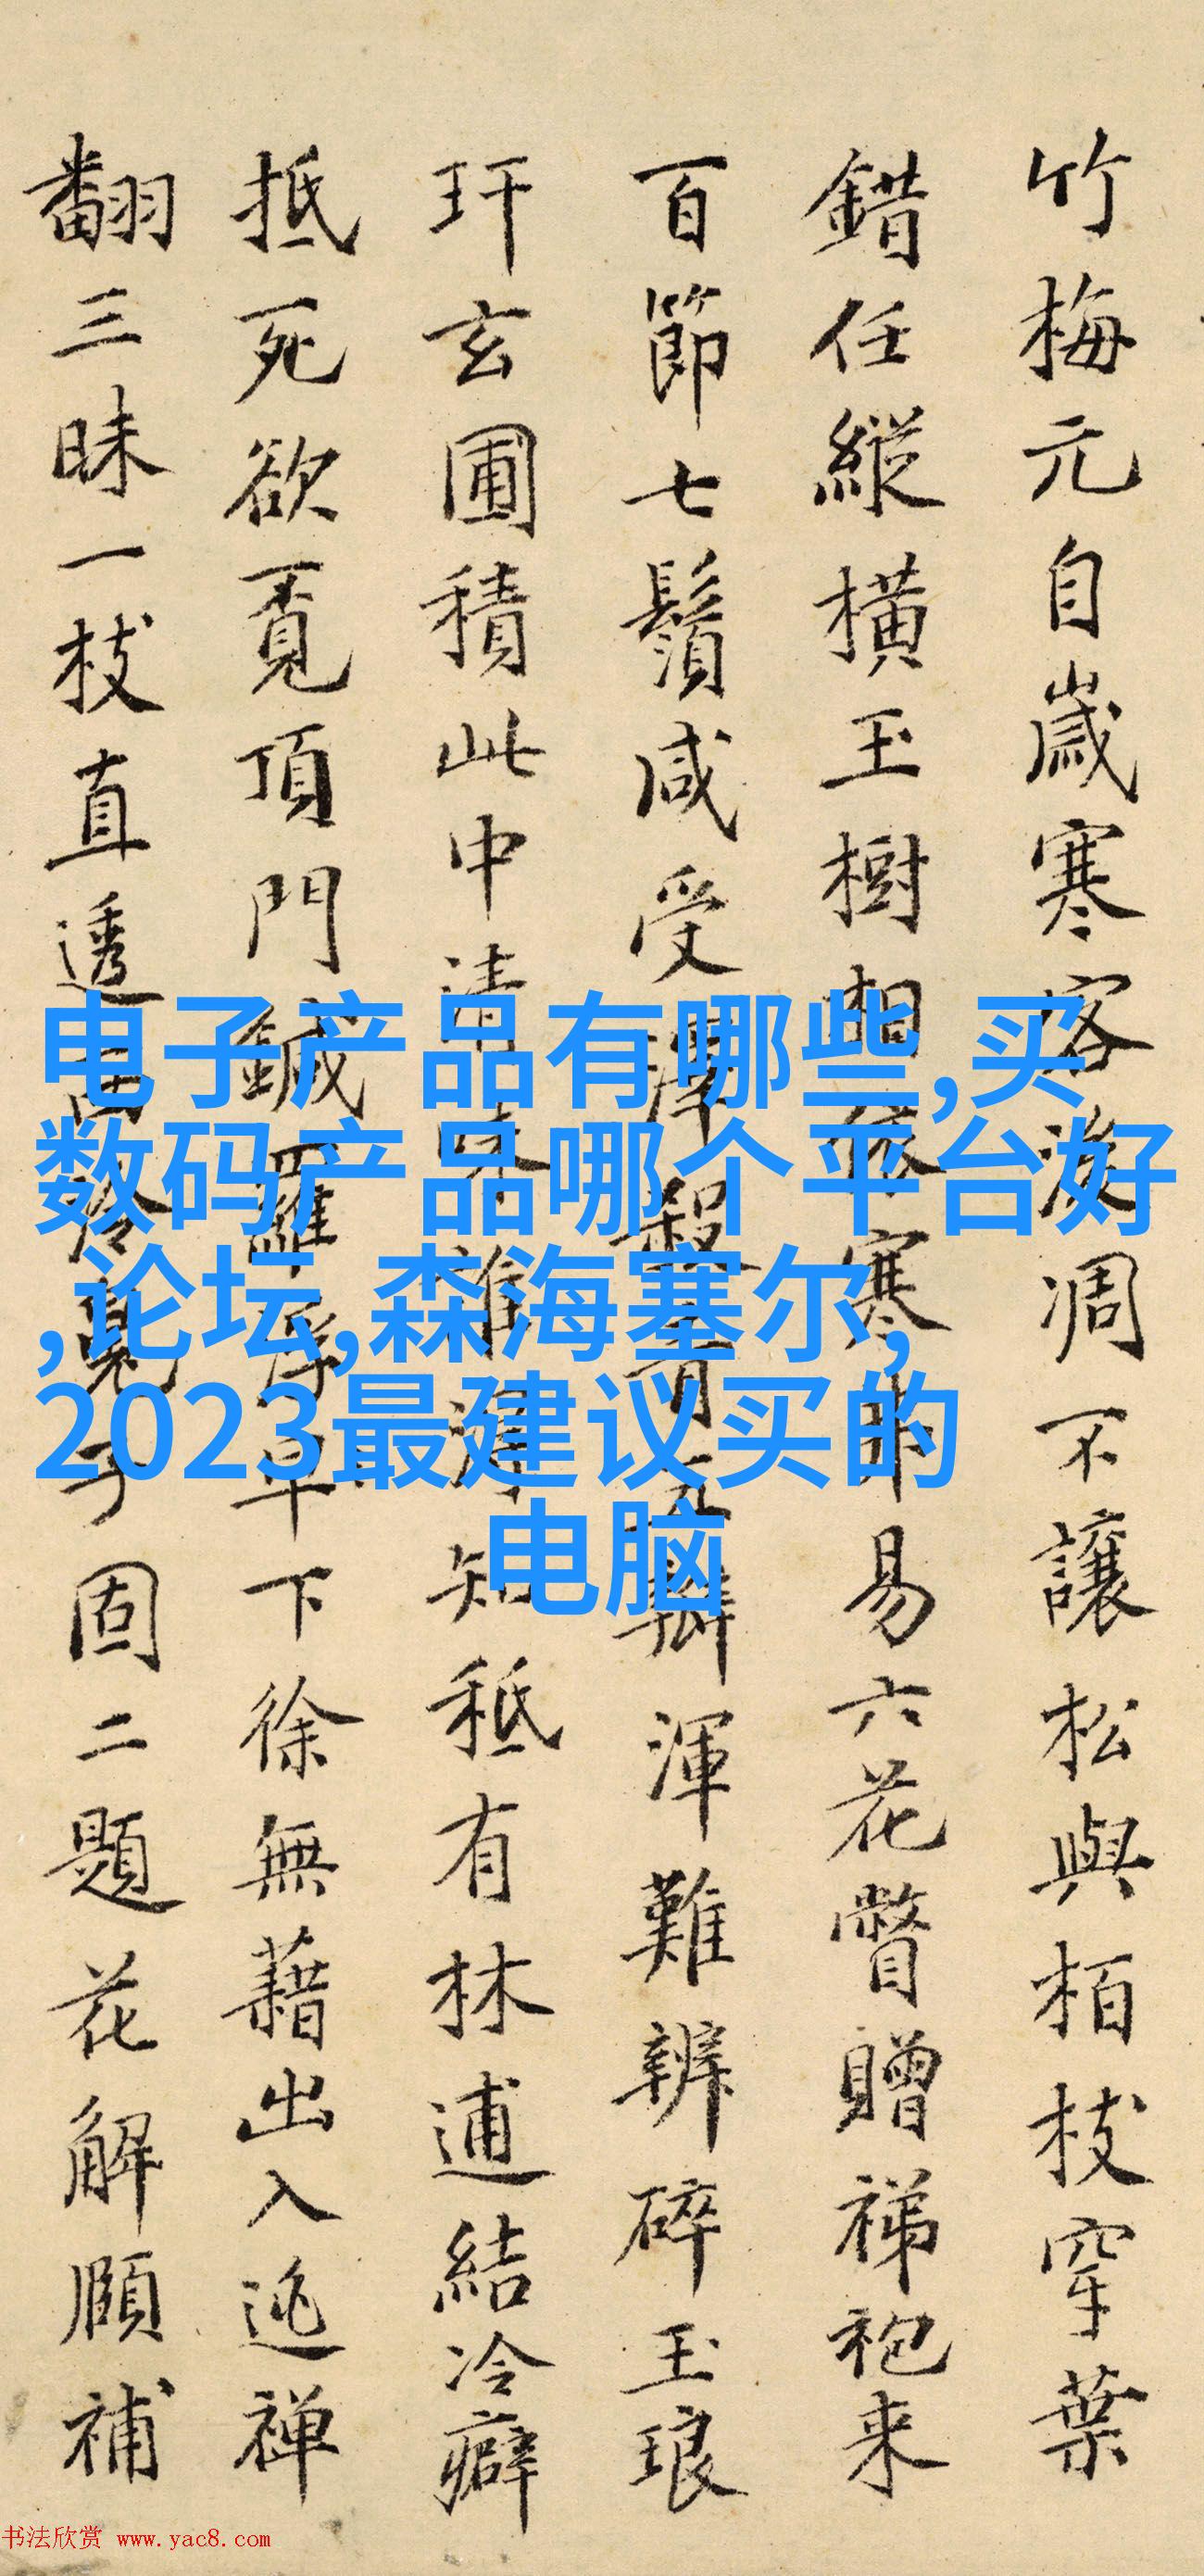 竹梅元自歲寒客後凋不讓松與栢枝穿葉
錯任縱橫玉樹相依寒不易六花瞥贈祶袍来
百節七鬚咸受澤殺青瓣渾難辨碎玉琅
玕玄圃積此中清味誰得知秪有林逋結冷癖
抵死欲覔頂門鍼羅浮早下徐無藉出入逃禅
翻三昧一枝直透冷魂子固二題花解頤補
电子产品有哪些,买
数码产品哪个平台好
,论坛,森海塞尔,
2023最建议买的
电脑
书法欣赏 www.yac8.com